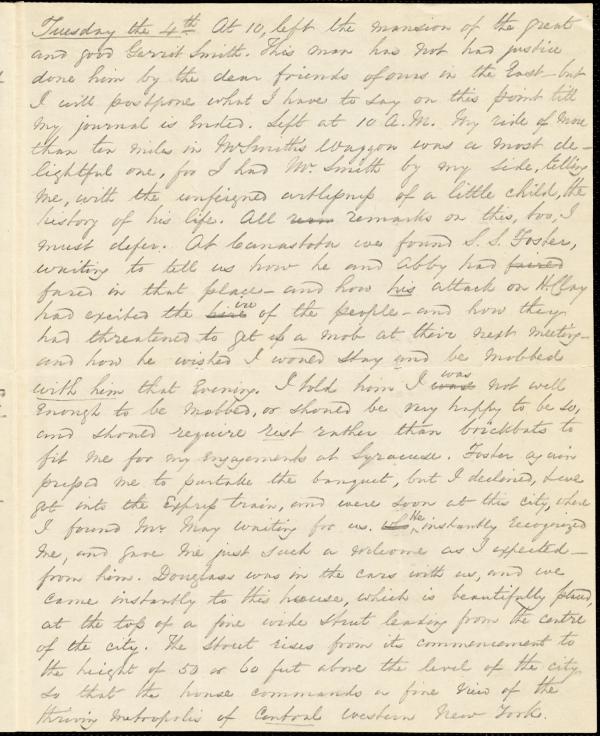 Tuesday the 4th At 10, left the mansion of the great
and good Gerrit Smith. This man has not had justice
done him by the dear friends of ours in the East - but
I will postpone what I have to say on this point till
my journal is Ended. Left at 10 A.M. My ride of more
than ten miles in Mr Smith's Waggon was a most de-
lightful one, for I had Mr. Smith by my side, telling
me, with the unfeigned artlessness of a little child, the
history of his life. All remarks on this, too, I
must defer. At Canastota we found S. S. Foster,
waiting to tell us how he and Abby had faired
fared in that place - and how his attack on H. Clay
had excited the ire of the people - and how they
had threatened to get up a mob at their next meeting -
and how he wished I would stay and be mobbed
with him that Evening. I told him I was not well
Enough to be mobbed, or should be very happy to be so,
and should require rest rather than brickbats to
fit me for my Engagements at Syracuse. Foster again
pressed me to partake the banquet, but I declined, & we
got into the Express train, and were soon at this city, where
I found Mr. May waiting for us. He instantly recognized
me, and gave me just such a welcome as I expected -
from him. Douglass was in the cars with us, and we
came instantly to this house, which is beautifully placed,
at the top of a fine wide street leading from the centre
of the city. The street rises from its commencement to
the height of 50 or 60 feet above the level of the city
so that the house commands a fine view of the
thriving metropolis of Central western New York.